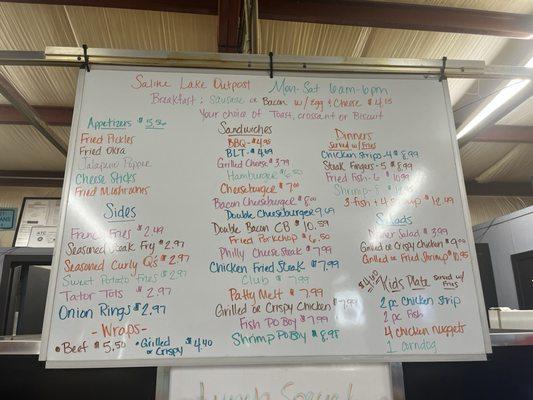 Saline Lake Outpost Mon-Sat 6am-6pm
Breakfast: Sausage or Bacon w/ Egg & Cheese $4.15
Your choice of Toast, croissant or Biscuit
Appetizers $5.50
Fried Pickles
Fried Okra
Jalapeno Poppers
Cheese Sticks
Fried Mushrooms
Sides
French Fries $2.49
Seasoned Steak Fry $2.97
Seasoned Curly Q's $2.97
Sweet Potato Fries $2.97
Tator Tots $2.97
Onion Rings $2.97
- Wraps -
• Beef $5.50 • Grilled or Crispy $4.40
Sandwiches
BBQ - $4.95
BLT - $4.69
Grilled Cheese $3.79
Hamburger $6.50
Cheeseburger $7.00
Bacon Cheeseburger $8.00
Double Cheeseburger 9.69
Double Bacon CB $10.59
Fried Porkchop $6.50
Philly Cheese Steak $7.99
Chicken Fried Steak $7.99
Club $7.99
Patty Melt $7.99
Grilled or Crispy Chicken $7.99
Fish Po Boy $7.99
Shrimp Po Boy $8.98
Dinners
Served w/ Fries
Chicken Strips - 4 $8.99
Steak Fingers - 5 $8.99
Fried Fish - 6 $10.99
Shrimp - 8
3 fish + 4 Shrimp $12.49
Salads
Dinner Salad $3.99
Grilled or Crispy Chicken $9.00
Grilled or Fried Fish $10.95
$4.60 Kids Plate Served w/ Fries
2 pc Chicken Strip
2 pc Fish
4 Chicken Nuggets
1 Corndog
Lunch Special